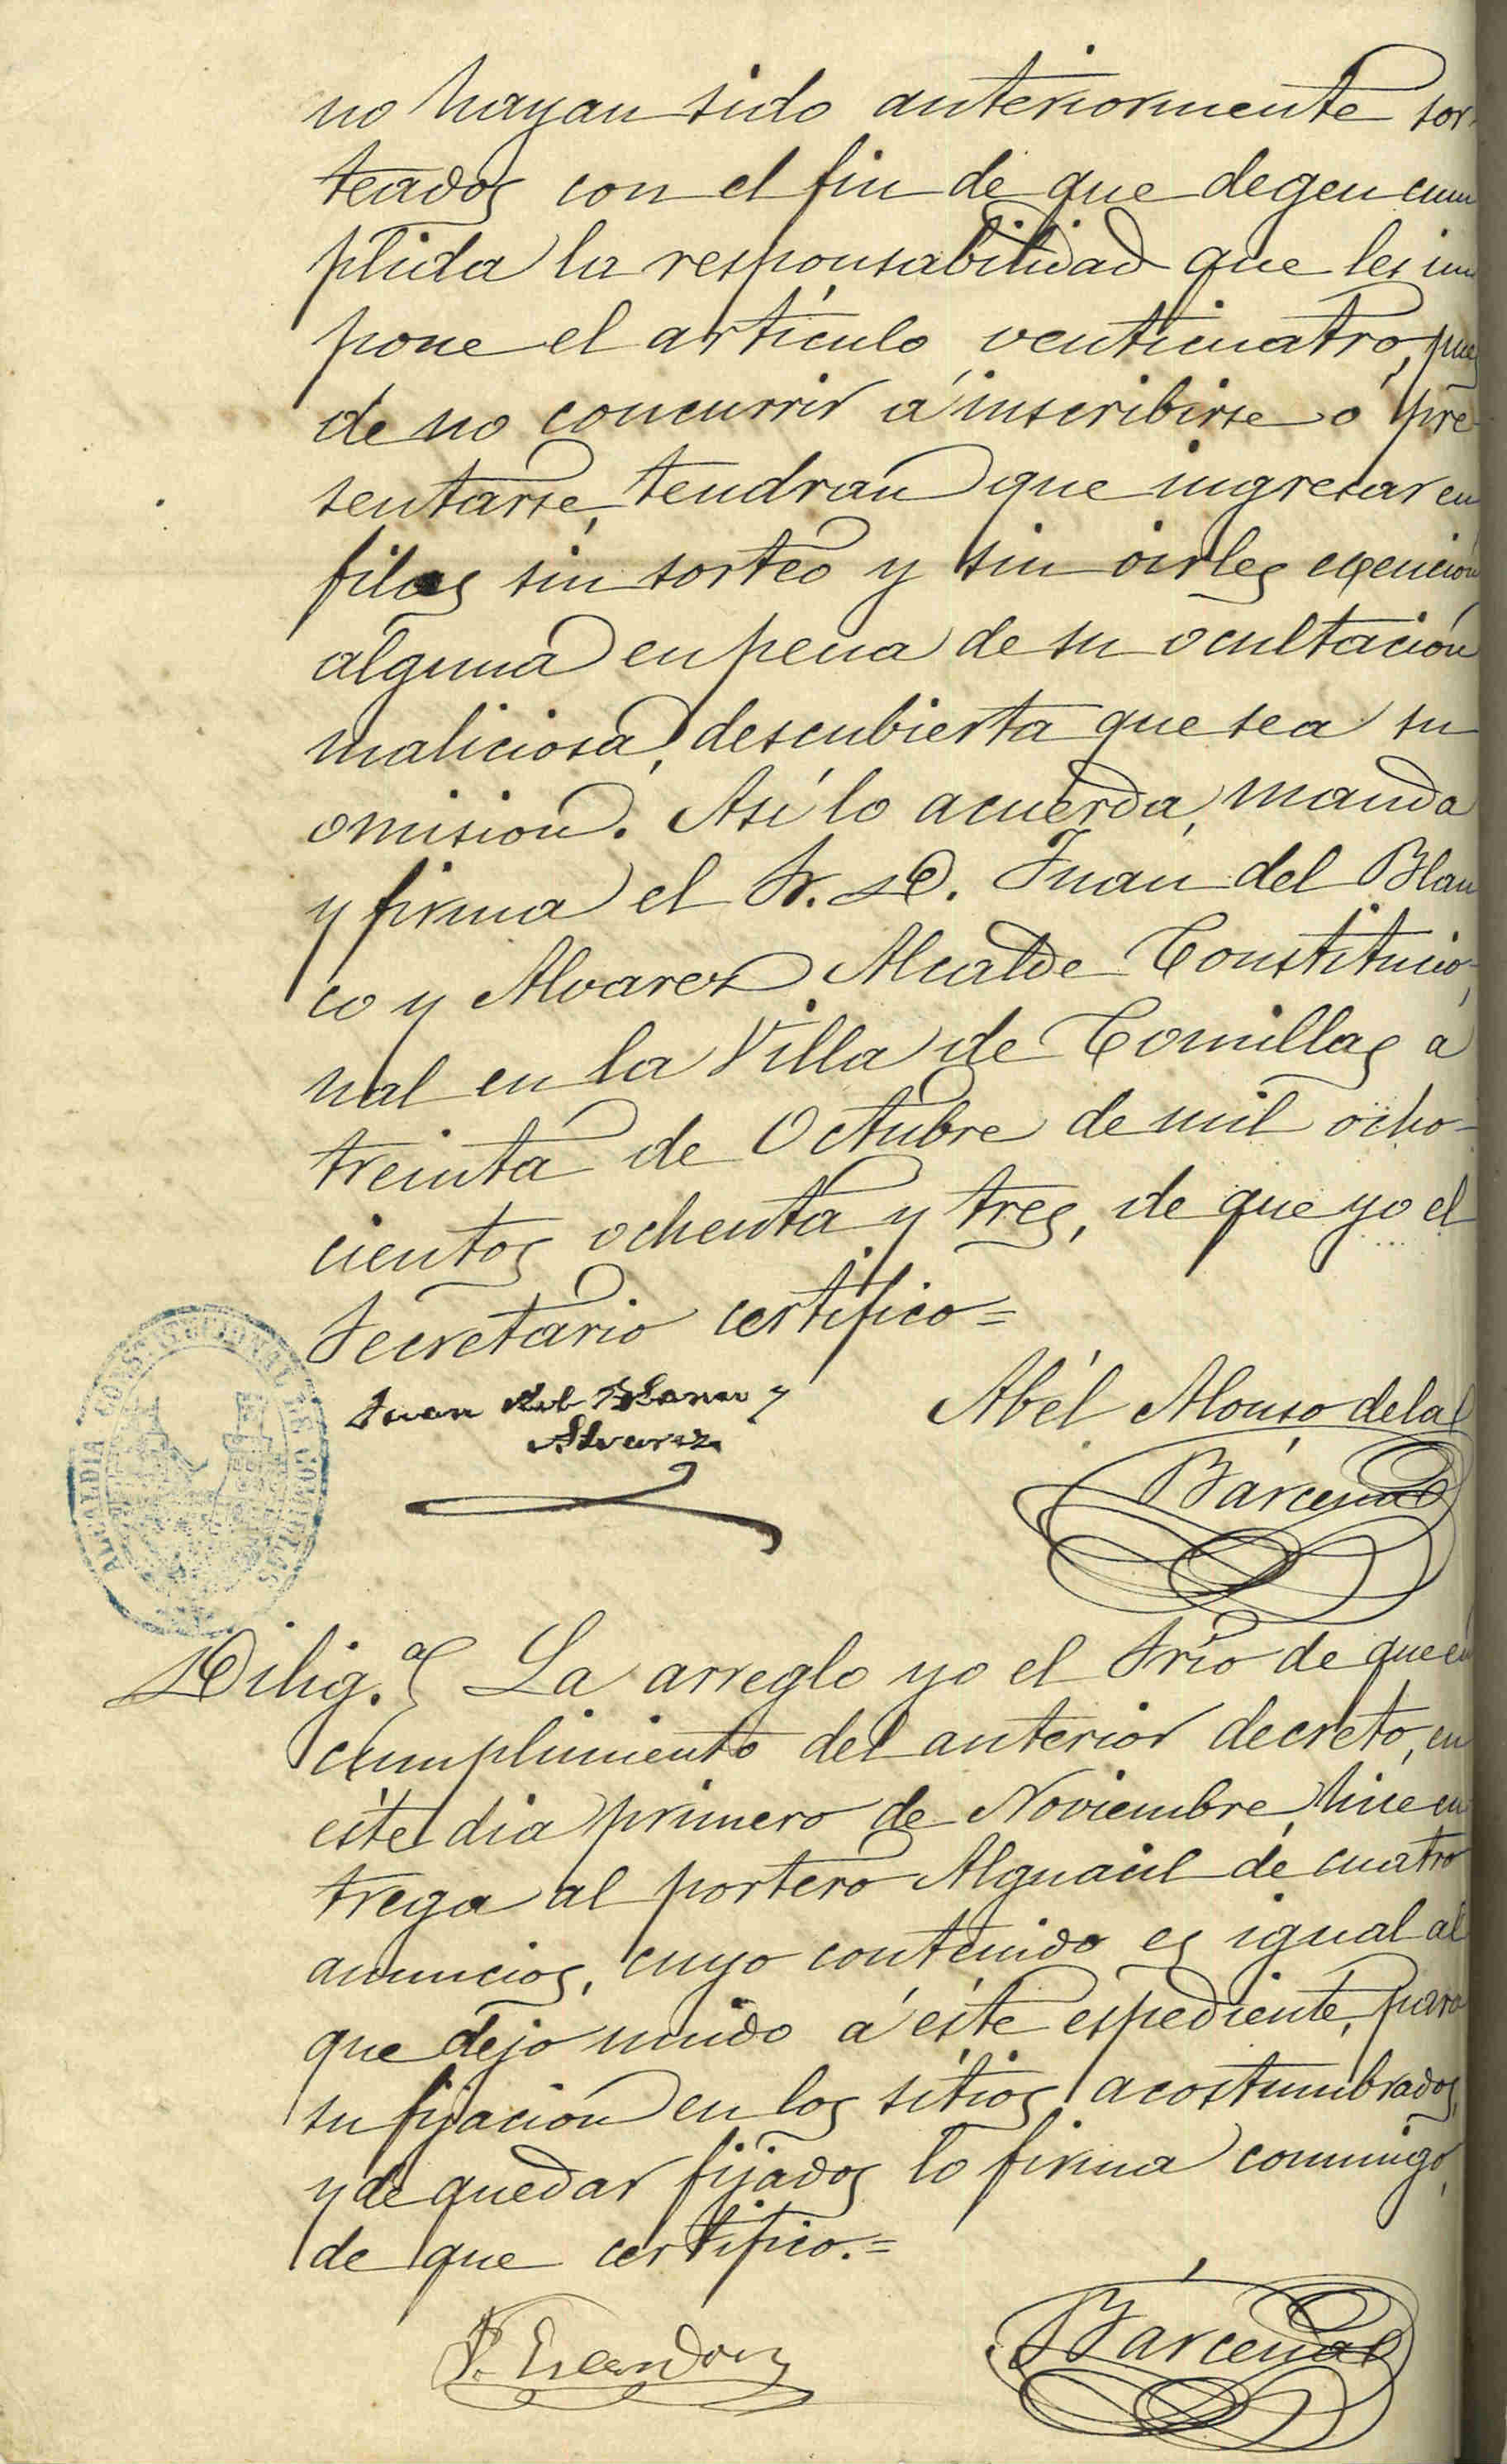 no hayan sido anteriormente sor-
teados con el fin de que degen cum
plida la responsabilidad que les im
pone el artículo venticuatro, pues
de no concurrir á inscribirse ó pre-
sentarse, tendran que ingresar en
filas sin sorteo y sin oirles exención
alguna en pena de su ocultación
maliciosa, descubierta que sea su
omision. Así lo acuerda, manda
y firma el Sr. D. Juan del Blan
co y Alvarez Alcalde Constitucio-
nal en la Villa de Comillas á
treinta de Octubre de mil ocho-
cientos ochenta y tres, de que yo el
Secretario certifico=
Juan del Blanco y
Alvarez
Abél Alonso de la
Bárcena
ALCALDIA CONSTITUCIONAL DE COMILLAS
Dilig.ª La arreglo yo el Srio de que en
cumplimiento del anterior decreto, en
éste dia primero de Noviembre, hice en
trega al portero Alguacil de cuatro
anuncios, cuyo contenido es igual al
que dejo unido á éste espediente, para
su fijación en los sitios acostumbrados,
y de quedar fijados lo firma conmigo,
de que certifico.=
Bárcena